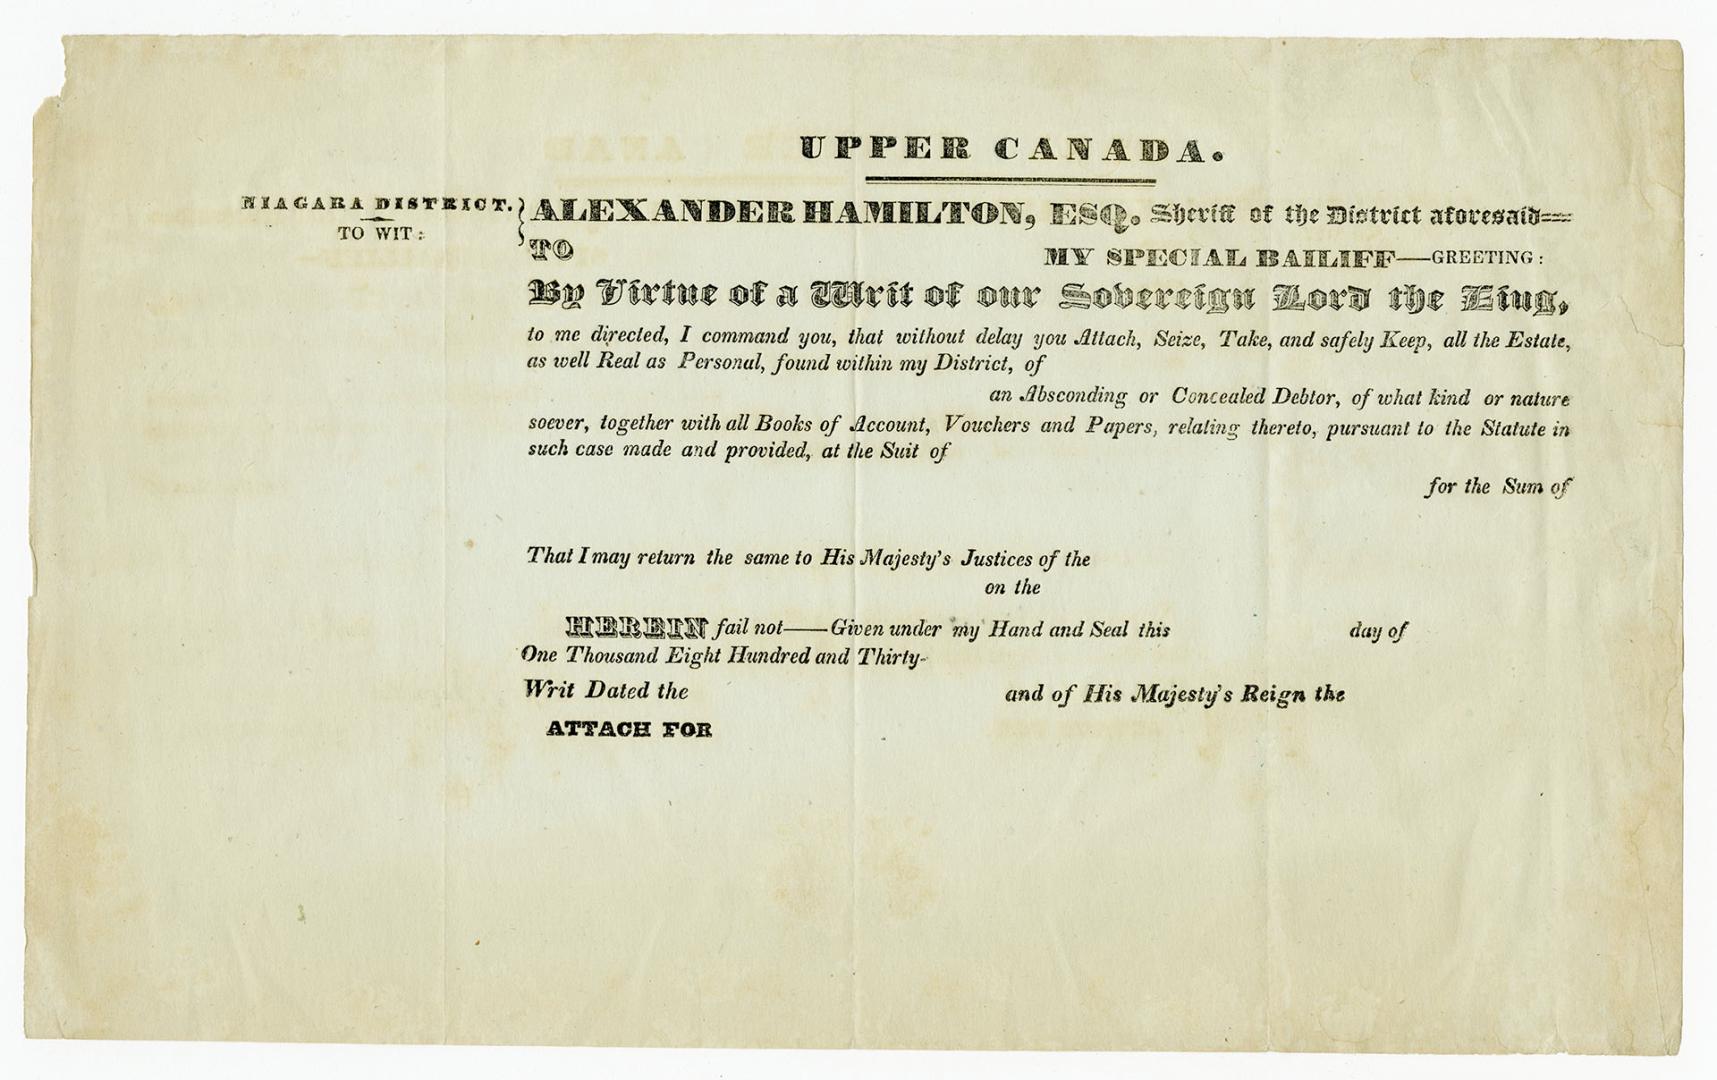 UPPER CANADA.
NIAGARA DISTRICT.
TO WIT:
ALEXANDER HAMILTON, ESQ. Sheriff of the District aforesaid==
TO MY SPECIAL BAILIFF——GREETING:
By Virtue of a Writ of our Sovereign Lord the King,
to me directed, I command you, that without delay you Attach, Seize, Take, and safely Keep, all the Estate,
as well Real as Personal, found within my District, of
an Absconding or Concealed Debtor, of what kind or nature
soever, together with all Books of Account, Vouchers and Papers, relating thereto, pursuant to the Statute in
such case made and provided, at the Suit of
for the Sum of
That I may return the same to His Majesty's Justices of the
on the
HEREIN fail not——Given under my Hand and Seal this day of
One Thousand Eight Hundred and Thirty-
Writ Dated the and of His Majesty's Reign the
ATTACH FOR